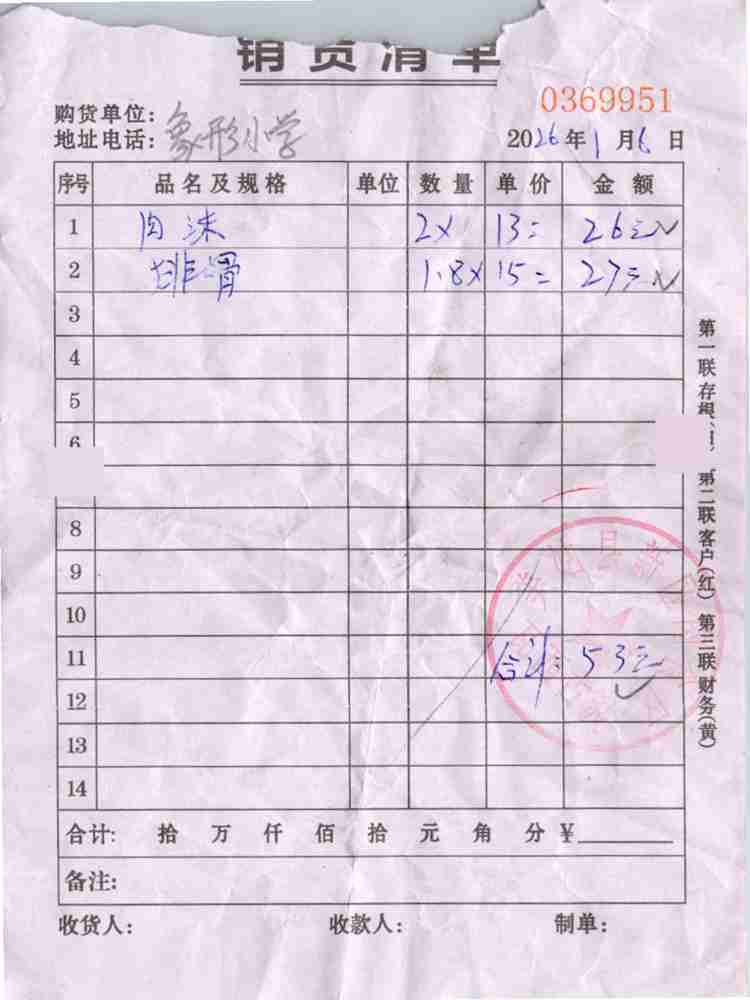 销货清单
0369951
购货单位：
地址电话：象形小学
2026年1月6日
序号 品名及规格 单位 数量 单价 金额
1 肉沫 2× 13= 26元
2 排骨 1.8× 15= 27元
3
4
5
6
8
9
10
11 合计：53元
12
13
14
合计: 拾 万 仟 佰 拾 元 角 分 ¥
备注:
收货人: 收款人: 制单:
第一联存根 第二联客户(红) 第三联财务(黄)